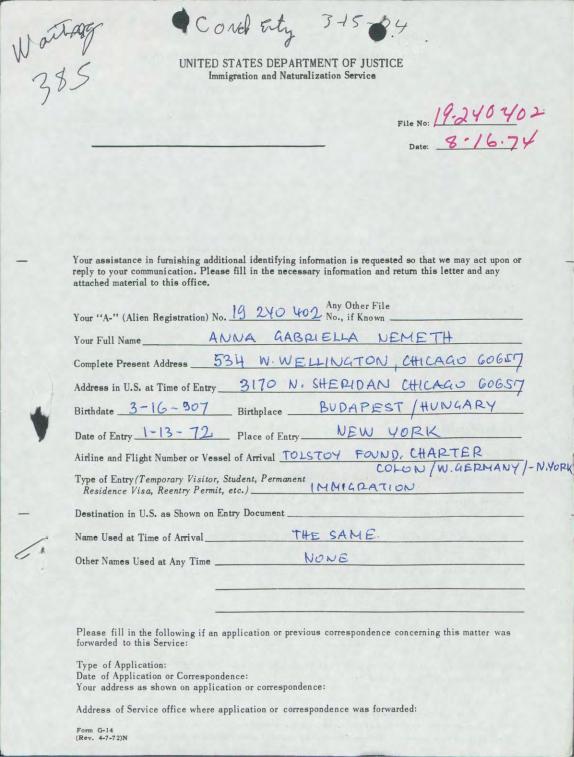 Waiting
385
3-15-
UNITED STATES DEPARTMENT OF JUSTICE
Immigration and Naturalization Service
File No: 19-240402
Date: 8-16-74
Your assistance in furnishing additional identifying information is requested so that we may act upon or
reply to your communication. Please fill in the necessary information and return this letter and any
attached material to this office.
Your "A-" (Alien Registration) No. 19 240 402 Any Other File No., if Known
Your Full Name ANNA GABRIELLA NEMETH
Complete Present Address 534 W. WELLINGTON, CHICAGO 60657
Address in U.S. at Time of Entry 3170 N. SHERIDAN CHICAGO 60657
Birthdate 3-16-907 Birthplace BUDAPEST/HUNGARY
Date of Entry 1-13-72 Place of Entry NEW YORK
Airline and Flight Number or Vessel of Arrival TOLSTOY FOUND, CHARTER
COLON/W.GERMANY/-N.YORK
Type of Entry (Temporary Visitor, Student, Permanent
Residence Visa, Reentry Permit, etc.) IMMIGRATION
Destination in U.S. as Shown on Entry Document
Name Used at Time of Arrival THE SAME.
Other Names Used at Any Time NONE
Please fill in the following if an application or previous correspondence concerning this matter was
forwarded to this Service:
Type of Application:
Date of Application or Correspondence:
Your address as shown on application or correspondence:
Address of Service office where application or correspondence was forwarded:
Form G-14
(Rev. 4-7-72)N